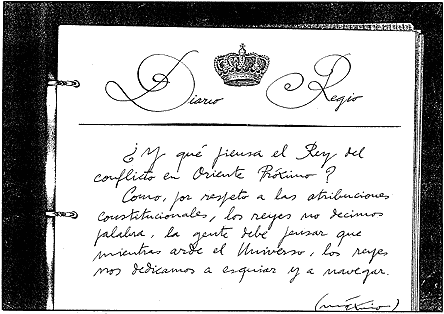 Diario Regio
¿Y qué piensa el Rey del
conflicto en Oriente Próximo?
Como, por respeto a las atribuciones
constitucionales, los reyes no decimos
palabra, la gente debe pensar que
mientras arde el Universo, los reyes
nos dedicamos a esquiar y a navegar.
(máximo)